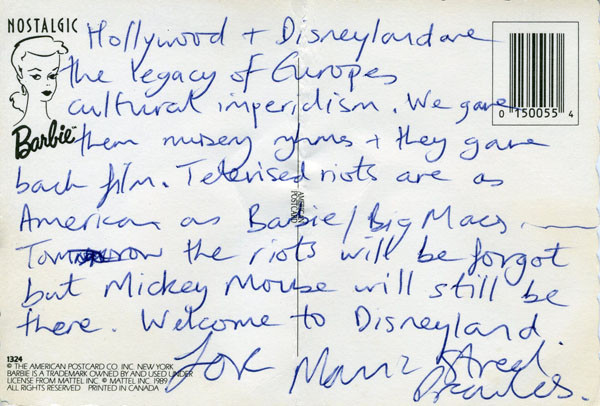 NOSTALGIC
Barbie™
Hollywood + Disneyland are
the legacy of Europes
cultural imperialism. We gave
them nursery ryhms + they gave
back film. Televised riots are as
American as Barbie/Big Macs.
Tomorrow the riots will be forgot
but Mickey Mouse will still be
there. Welcome to Disneyland.
Love Manic Street
Preachers.
0 150055 4
AMERICAN
POSTCARD
1324
© THE AMERICAN POSTCARD CO. INC. NEW YORK
BARBIE IS A TRADEMARK OWNED BY AND USED UNDER
LICENSE FROM MATTEL INC. © MATTEL INC 1989
ALL RIGHTS RESERVED PRINTED IN CANADA